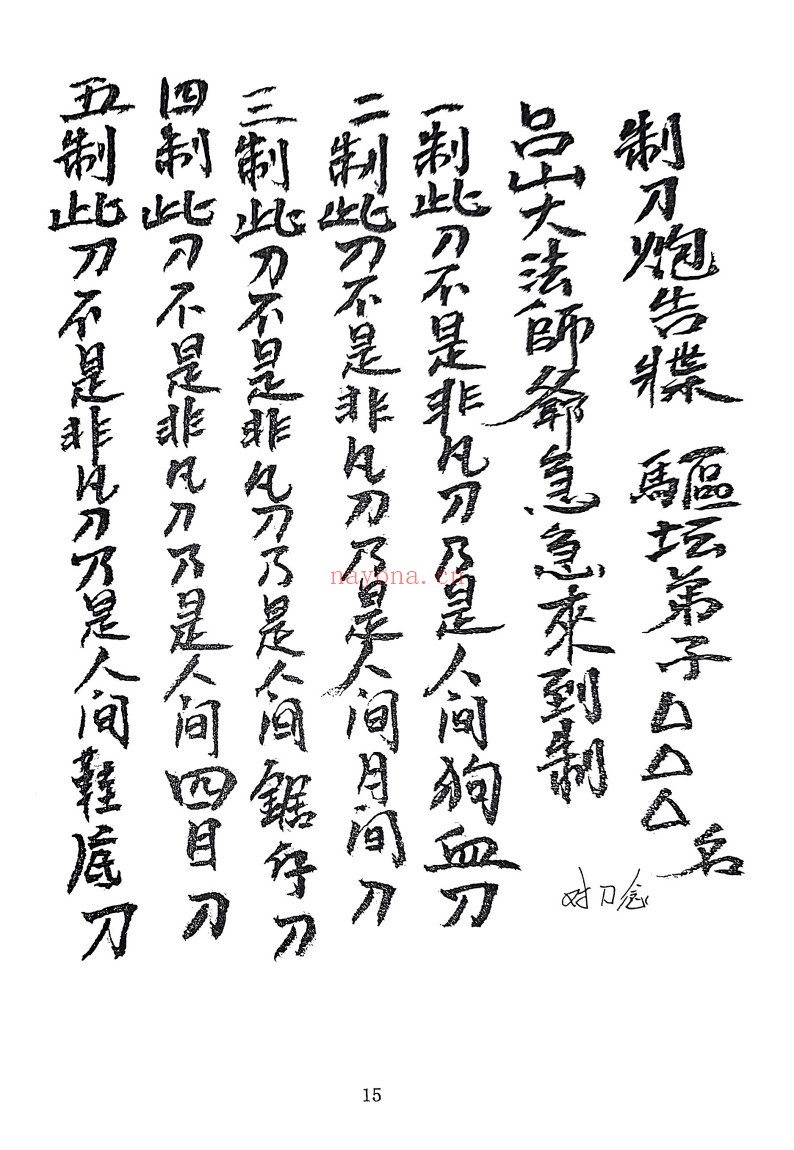 制刀炮告牒　驅坛弟子△△△名
对刀念
吕山大法師爺急急來到制
一制此刀不是非凡刀乃是人间狗血刀
二制此刀不是非凡刀乃是人间月间刀
三制此刀不是非凡刀乃是人间鋸仔刀
四制此刀不是非凡刀乃是人间四目刀
五制此刀不是非凡刀乃是人间鞋底刀
nayona.cn
15